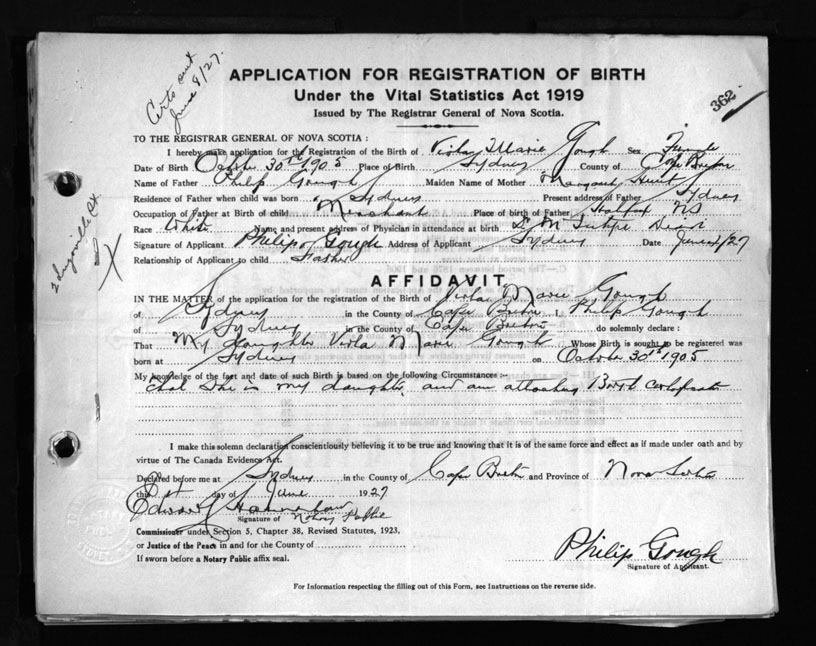 Certs out
June 8/27.
APPLICATION FOR REGISTRATION OF BIRTH
Under the Vital Statistics Act 1919
Issued by The Registrar General of Nova Scotia.
362
TO THE REGISTRAR GENERAL OF NOVA SCOTIA:
I hereby make application for the Registration of the Birth of Viola Marie Gough Sex Female
Date of Birth October 30th 1905 Place of Birth Sydney County of Cape Breton
Name of Father Philip Gough Maiden Name of Mother Margaret Hunt
Residence of Father when child was born Sydney Present address of Father Sydney
Occupation of Father at Birth of child Merchant Place of birth of Father Halifax NS
Race White Name and present address of Physician in attendance at birth Dr
Signature of Applicant Philip Gough Address of Applicant Sydney Date June 1/27
Relationship of Applicant to child Father
AFFIDAVIT
IN THE MATTER of the application for the registration of the Birth of Viola Marie Gough
of Sydney in the County of Cape Breton I Philip Gough
of Sydney in the County of Cape Breton do solemnly declare:
That My daughter Viola Marie Gough Whose Birth is sought to be registered was
born at Sydney on October 30th 1905
My knowledge of the fact and date of such Birth is based on the following Circumstances :-
that she is my daughter, and am attaching Birth Certificate
I make this solemn declaration conscientiously believing it to be true and knowing that it is of the same force and effect as if made under oath and by
virtue of The Canada Evidence Act.
Declared before me at Sydney in the County of Cape Breton and Province of Nova Scotia
this 1st day of June 1927
Signature of Notary Public
Commissioner under Section 5, Chapter 38, Revised Statutes, 1923.
or Justice of the Peace in and for the County of
If sworn before a Notary Public affix seal.
Philip Gough
Signature of Applicant.
For Information respecting the filling out of this Form, see Instructions on the reverse side.